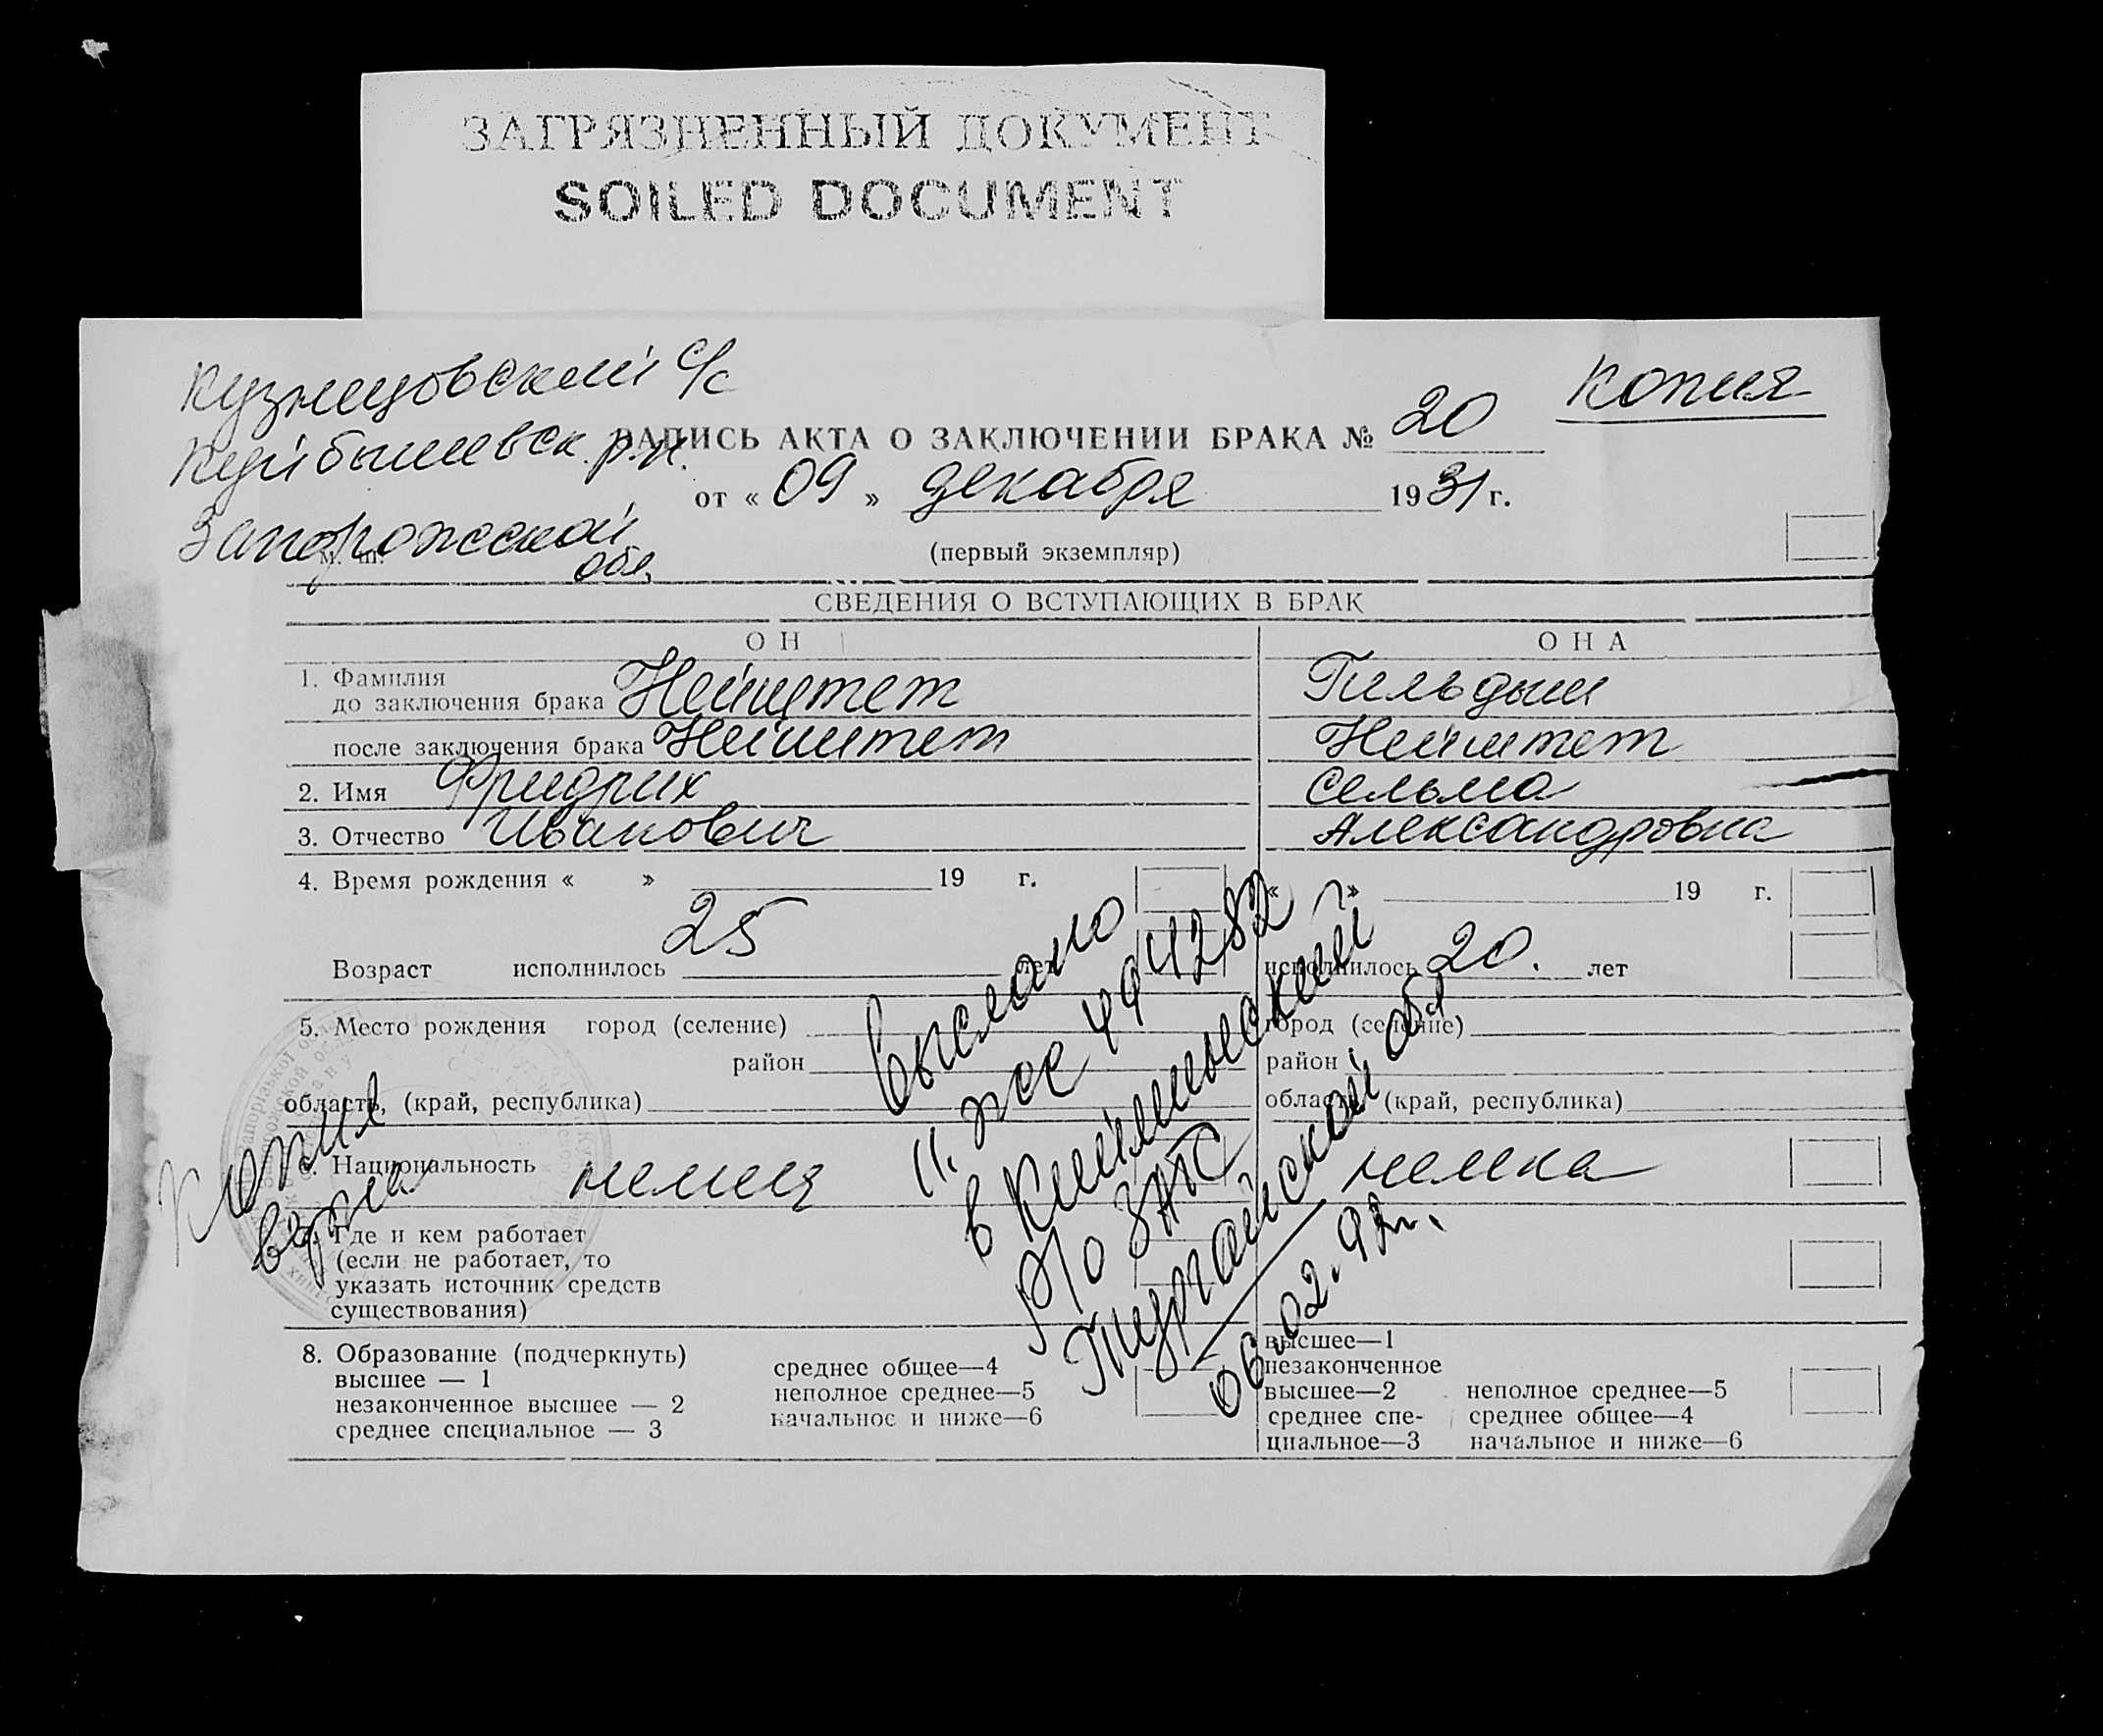 ЗАГРЯЗНЕННЫЙ ДОКУМЕНТ
SOILED DOCUMENT
Кузнецовский с/с
Копия
Куйбышевск. р.н.
ЗАПИСЬ АКТА О ЗАКЛЮЧЕНИИ БРАКА № 20
от « 09 » декабря 1931 г.
Запорожской
обл.
м. ш.
(первый экземпляр)
СВЕДЕНИЯ О ВСТУПАЮЩИХ В БРАК
ОН
ОНА
1. Фамилия
до заключения брака Нейштет
Гильдыш
после заключения брака Нейштет
Нейштет
2. Имя Фридрих
Сельма
3. Отчество Иванович
Александровна
4. Время рождения « » 19 г.
« » 19 г.
Возраст исполнилось 25 лет
исполнилось 20. лет
5. Место рождения город (селение)
город (селение)
район
район
область, (край, республика)
область (край, республика)
6. Национальность немец
немка
7. Где и кем работает
(если не работает, то
указать источник средств
существования)
8. Образование (подчеркнуть)
высшее — 1
незаконченное высшее — 2
среднее специальное — 3
среднее общее—4
неполное среднее—5
начальное и ниже—6
высшее—1
незаконченное
высшее—2
среднее спе-
циальное—3
неполное среднее—5
среднее общее—4
начальное и ниже—6
Копия
верна
Выслано
494282
в
р/о ЗАГС
Тургайской обл
06.02.92г.